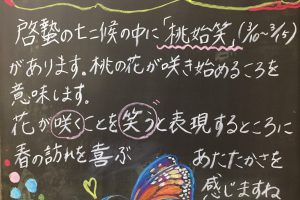 啓蟄の七二候の中に「桃始笑」(3/10~3/15)
があります。桃の花が咲き始めるころを
意味します。
花が咲くことを笑うと表現するところに
春の訪れを喜ぶ あたたかさを
感じますね